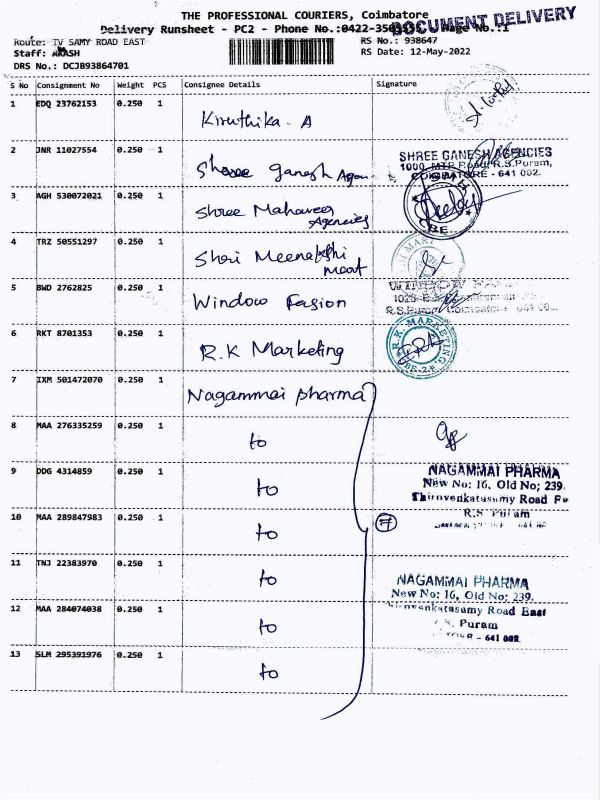 THE PROFESSIONAL COURIERS, Coimbatore
DOCUMENT DELIVERY
Delivery Runsheet - PC2 - Phone No.:0422-350 Page No.:1
Route: TV SAMY ROAD EAST
RS No.: 938647
Staff: AKASH
RS Date: 12-May-2022
DRS No.: DCJB93864701
S No Consignment No Weight PCS Consignee Details Signature
1 EDQ 23762153 0.250 1
Kiruthika. A
2 JNR 11027554 0.250 1
Shree Ganesh Agen
SHREE GANESH AGENCIES
1000, MTP Road, R.S.Puram,
COIMBATORE - 641 002.
3 AGH 530072021 0.250 1
Shree Mahaveer
Agencies
CBE
4 TRZ 50551297 0.250 1
Shri Meenakshi
Mart
5 BWD 2762825 0.250 1
Window Fasion
WINDOW
1025,
R.S.Puram, Coimbatore 641 00
6 RKT 8701353 0.250 1
R.K Marketing
R.K. MARKETING
CBE-2
7 IXM 501472070 0.250 1
Nagammai pharma
8 MAA 276335259 0.250 1
to
9 DDG 4314859 0.250 1
to
NAGAMMAI PHARMA
New No: 16, Old No; 239.
Thiruvenkatasamy Road
R.S. Puram
10 MAA 289847983 0.250 1
to
7
11 TNJ 22383970 0.250 1
to
NAGAMMAI PHARMA
New No: 16, Old No: 239.
Thiruvenkatasamy Road East
R.S. Puram
- 641 002.
12 MAA 284074038 0.250 1
to
13 SLM 295391976 0.250 1
to